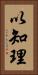 以知理